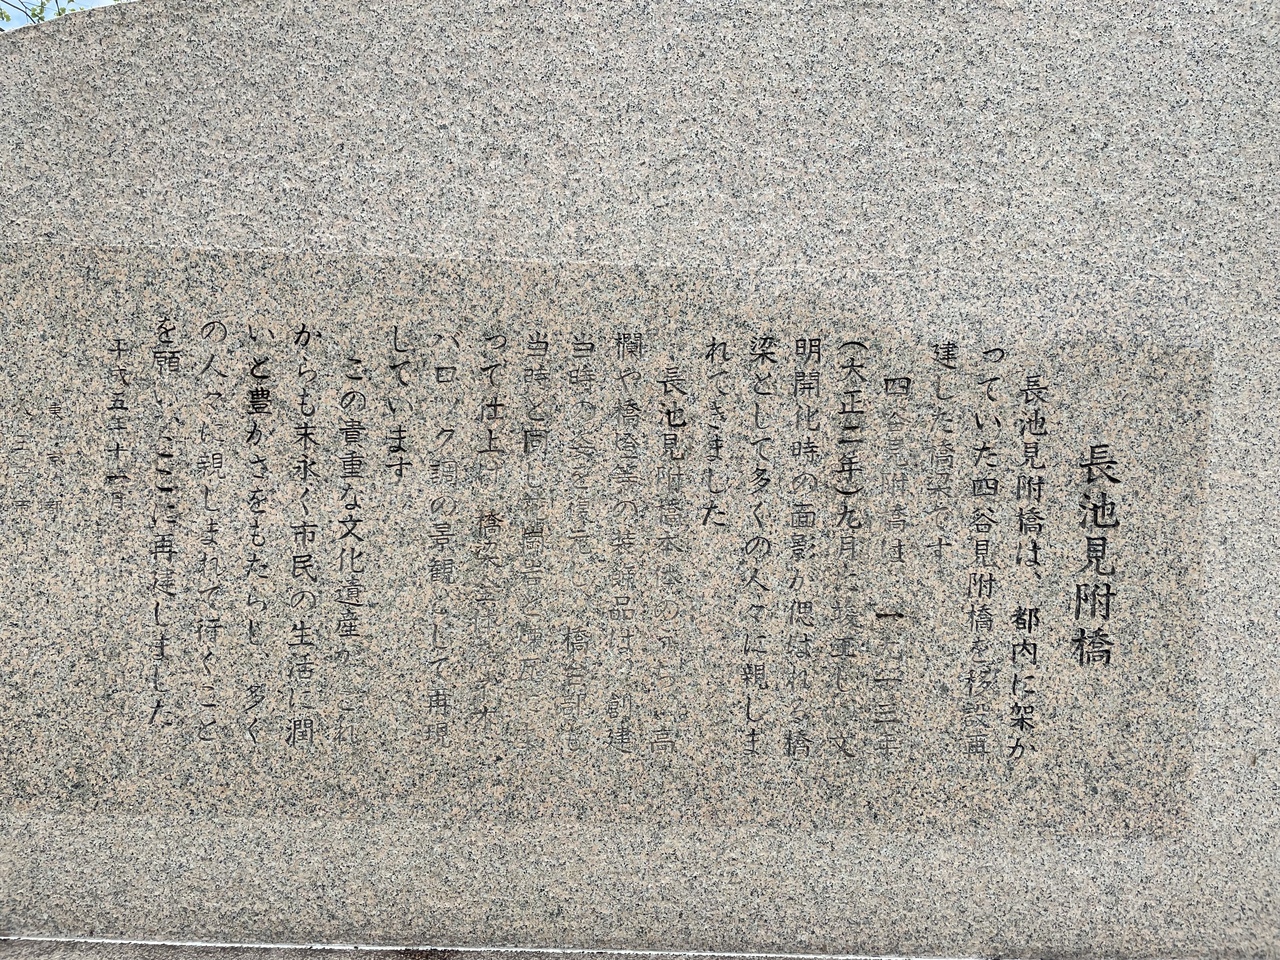 長池見附橋
長池見附橋は、都内に架か
っていた四谷見附橋を移設再
建した橋梁です
四谷見附橋は 一九一三年
(大正二年)九月に竣工し 文
明開化時の面影が偲ばれる橋
梁として多くの人々に親しま
れてきました
長池見附橋本体のうち 高
欄や橋燈等の装飾品は、創建
当時の姿を復元し、橋台部も
当時と同じ花崗岩と煉瓦によ
って仕上げ 橋梁全体をネオ
バロック調の景観として再現
しています
この貴重な文化遺産がこれ
からも末永く市民の生活に潤
いと豊かさをもたらし 多く
の人々に親しまれて行くこと
を願い、ここに再建しました
平成五年十一月
東京都
八王子市